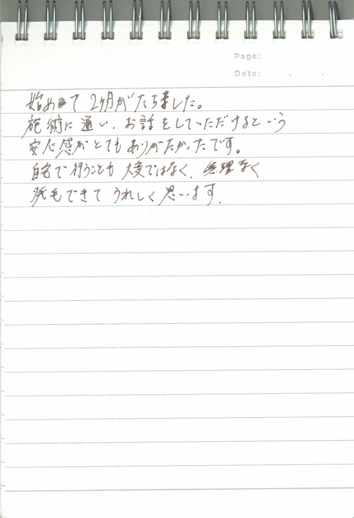 Page:
Date: . .
始めて 2ヶ月がたちました。
施術に通い、お話をしていただけるという
安心感がとてもありがたかったです。
自宅で行うことも大変ではなく、無理なく
脱毛できて うれしく思います.